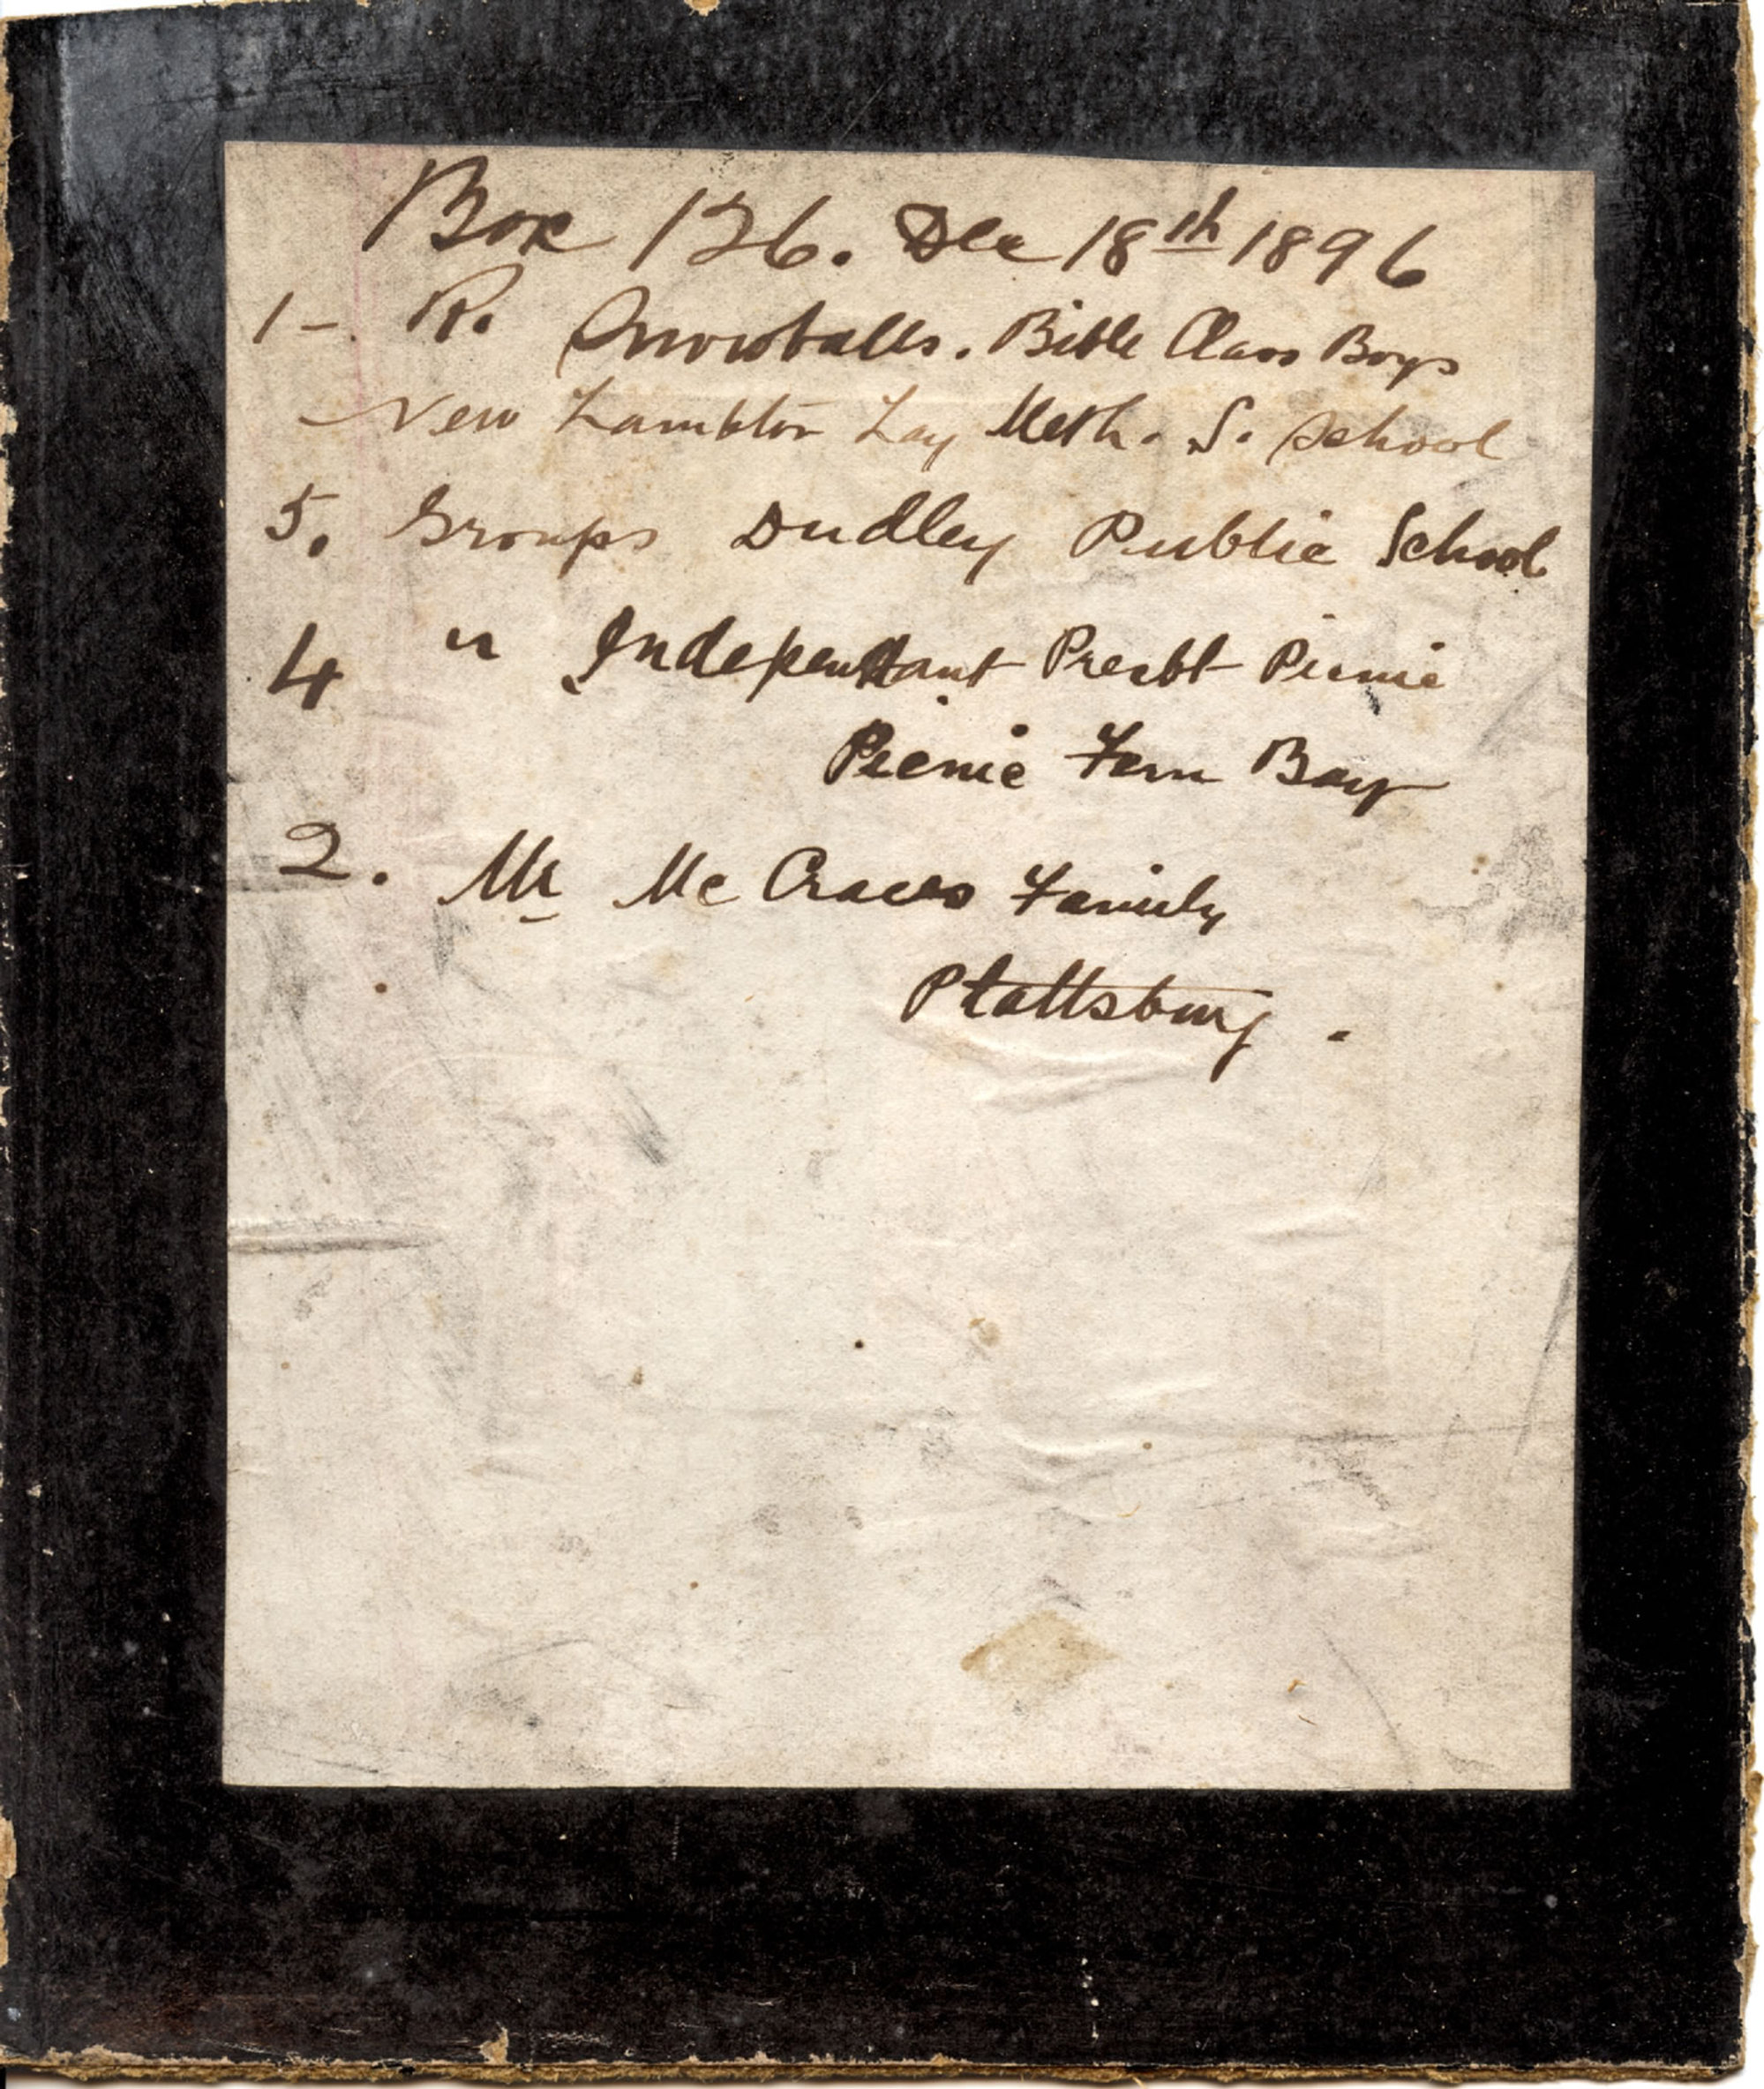 Box 126. Dec 18th 1896
1-. R. Snowballs. Bible Class Boys
New Lambton Lay Meth. S. School
5. Groups Dudley Public School
4 " Independant Presbt Picnic
Picnic Fern Bay
2. Mr McCraes Family
Plattsburg.